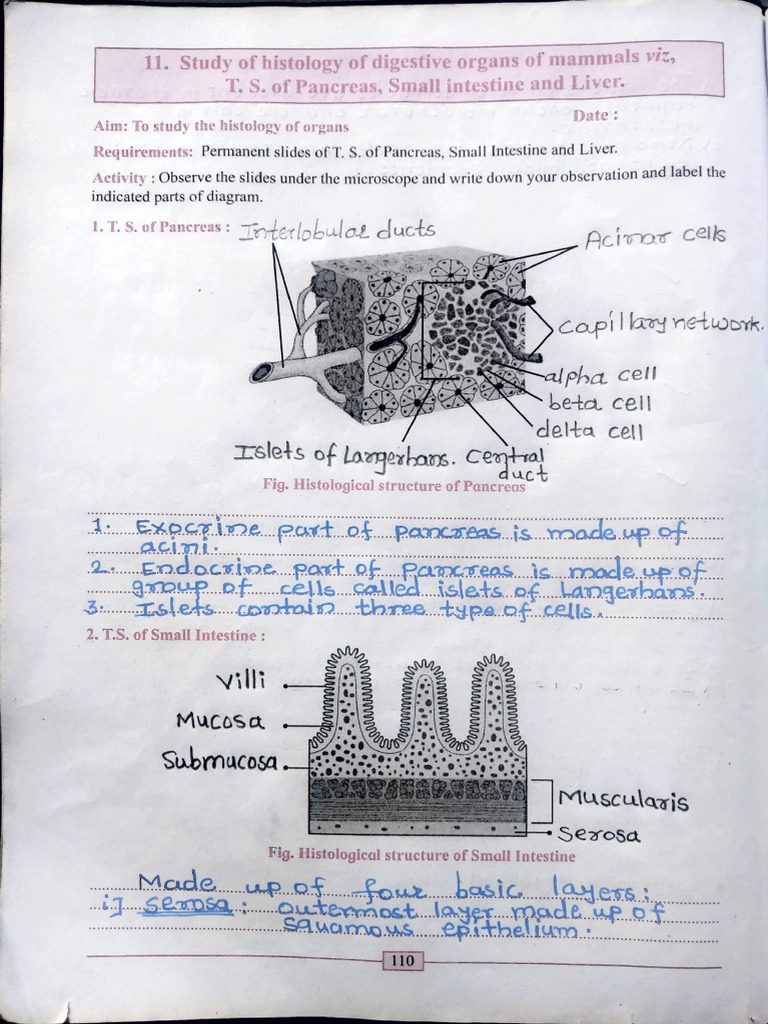 11. Study of histology of digestive organs of mammals viz,
T. S. of Pancreas, Small intestine and Liver.
Date :
Aim: To study the histology of organs
Requirements: Permanent slides of T. S. of Pancreas, Small Intestine and Liver.
Activity : Observe the slides under the microscope and write down your observation and label the
indicated parts of diagram.
1. T. S. of Pancreas : Interlobular ducts
Acinar cells
Capillary network.
alpha cell
beta cell
delta cell
Islets of Langerhans. Central
duct
Fig. Histological structure of Pancreas
1. Exocrine part of pancreas is made up of
acini.
2. Endocrine part of Pancreas is made up of
group of cells called islets of Langerhans.
3. Islets contain three type of cells.
2. T.S. of Small Intestine :
Villi
Mucosa
Submucosa
Muscularis
Serosa
Fig. Histological structure of Small Intestine
Made up of four basic layers:
i] Serosa: outermost layer made up of
squamous epithelium.
110